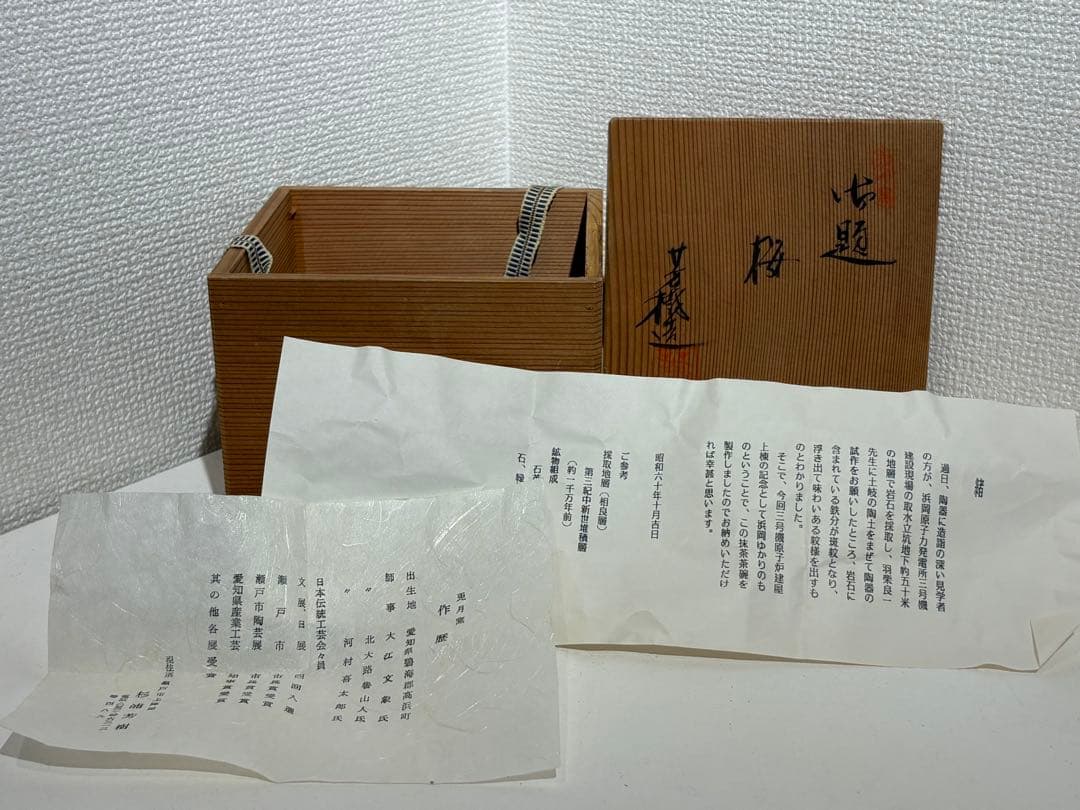 御題
桜
芳樹造
緒
過日、陶器に造詣の深い見学者
の方が、浜岡原子力発電所三号機
建設現場の取水立坑地下約五十米
の地層で岩石を採取し、羽柴良一
先生に土岐の陶土をまぜて陶器の
試作をお願いしたところ、岩石に
含まれている鉄分が斑紋となり、
浮き出て味わいある紋様を出すも
のとわかりました。
そこで、今回三号機原子炉建屋
上棟の記念として浜岡ゆかりのも
のということで、この抹茶茶碗を
製作しましたのでお納めいただけ
れば幸甚と思います。
昭和六十年十月吉日
ご参考
採取地層(相良層)
第三紀中新世堆積層
(約一千万年前)
鉱物組成
石、
作歴
出生地 愛知県碧海郡高浜町
師事 大江文象氏
〃 北大路魯山人氏
〃 河村喜太郎氏
日本伝統工芸会々員
文展、日展 入選
瀬戸市 市長賞受賞
瀬戸市陶芸展 市長賞受賞
愛知県産業工芸 知事賞受賞
其の他各展受賞
杉浦芳樹